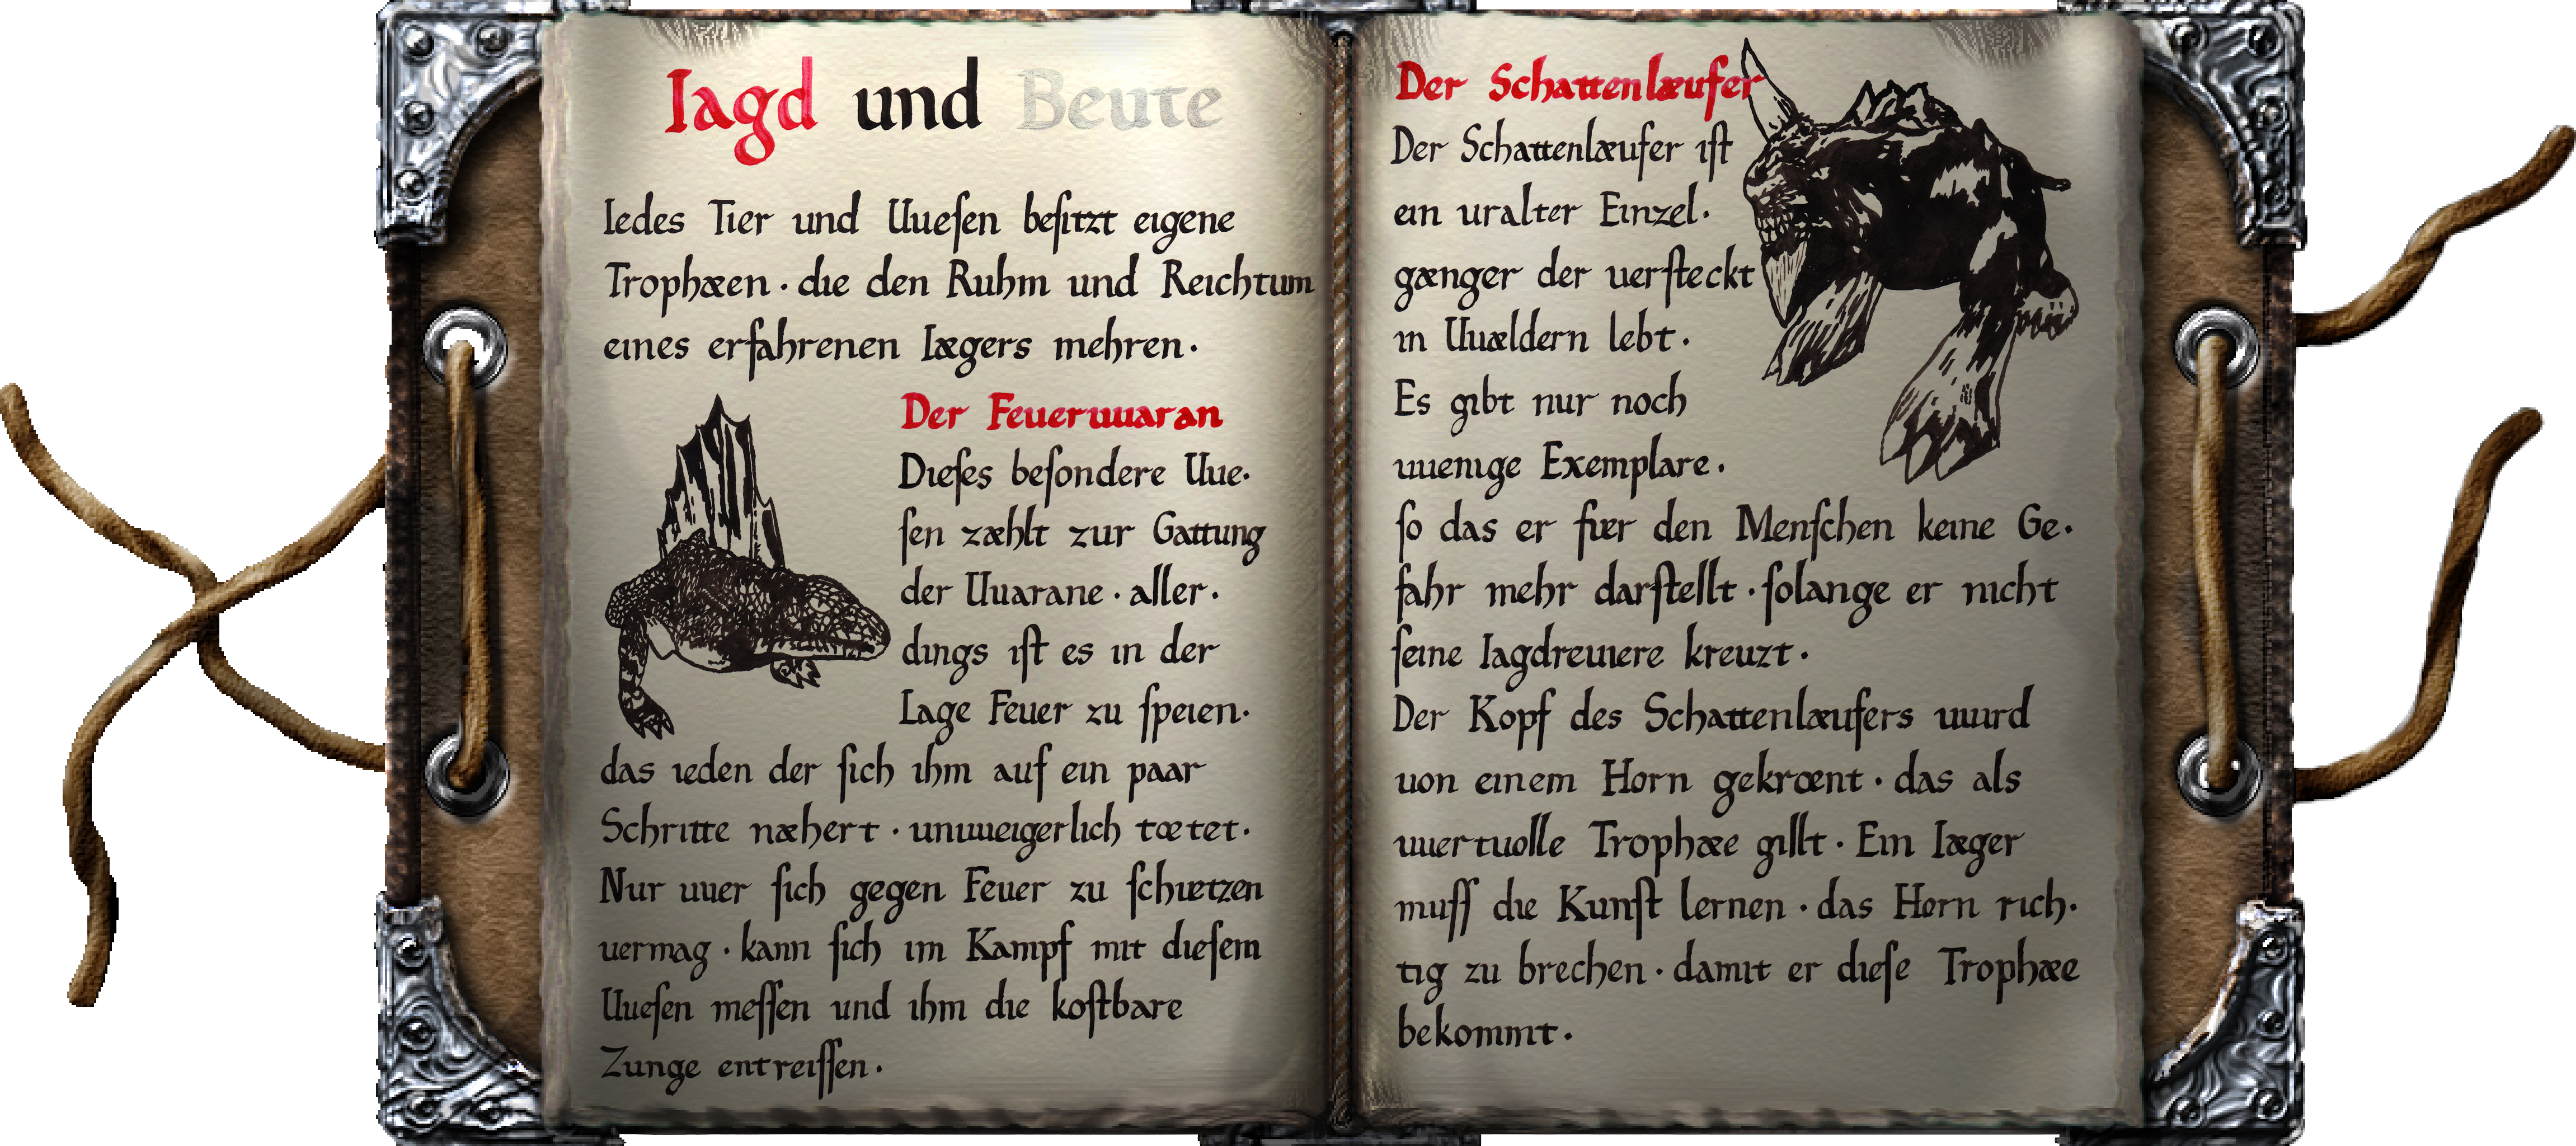 Iagd und Beute
Iedes Tier und Uueſen beſitzt eigene
Trophæen · die den Ruhm und Reichtum
eines erfahrenen Iægers mehren ·
Der Feueruuaran
Dieſes beſondere Uue·
ſen zæhlt zur Gattung
der Uuarane · aller·
dings iſt es in der
Lage Feuer zu ſpeien·
das ieden der ſich ihm auf ein paar
Schritte næhert · unuueigerlich tœtet·
Nur uuer ſich gegen Feuer zu ſchuetzen
uermag · kann ſich im Kampf mit dieſem
Uueſen meſſen und ihm die koſtbare
Zunge entreiſſen ·
Der Schattenlæufer
Der Schattenlæufer iſt
ein uralter Einzel·
gænger der uerſteckt
in Uuældern lebt ·
Es gibt nur noch
uuenige Exemplare ·
ſo das er fuer den Menſchen keine Ge·
fahr mehr darſtellt · ſolange er nicht
ſeine Iagdreuiere kreuzt ·
Der Kopf des Schattenlæufers uuird
uon einem Horn gekrœnt · das als
uuertuolle Trophæe gillt · Ein Iæger
muſſ die Kunſt lernen · das Horn rich·
tig zu brechen · damit er dieſe Trophæe
bekommt ·